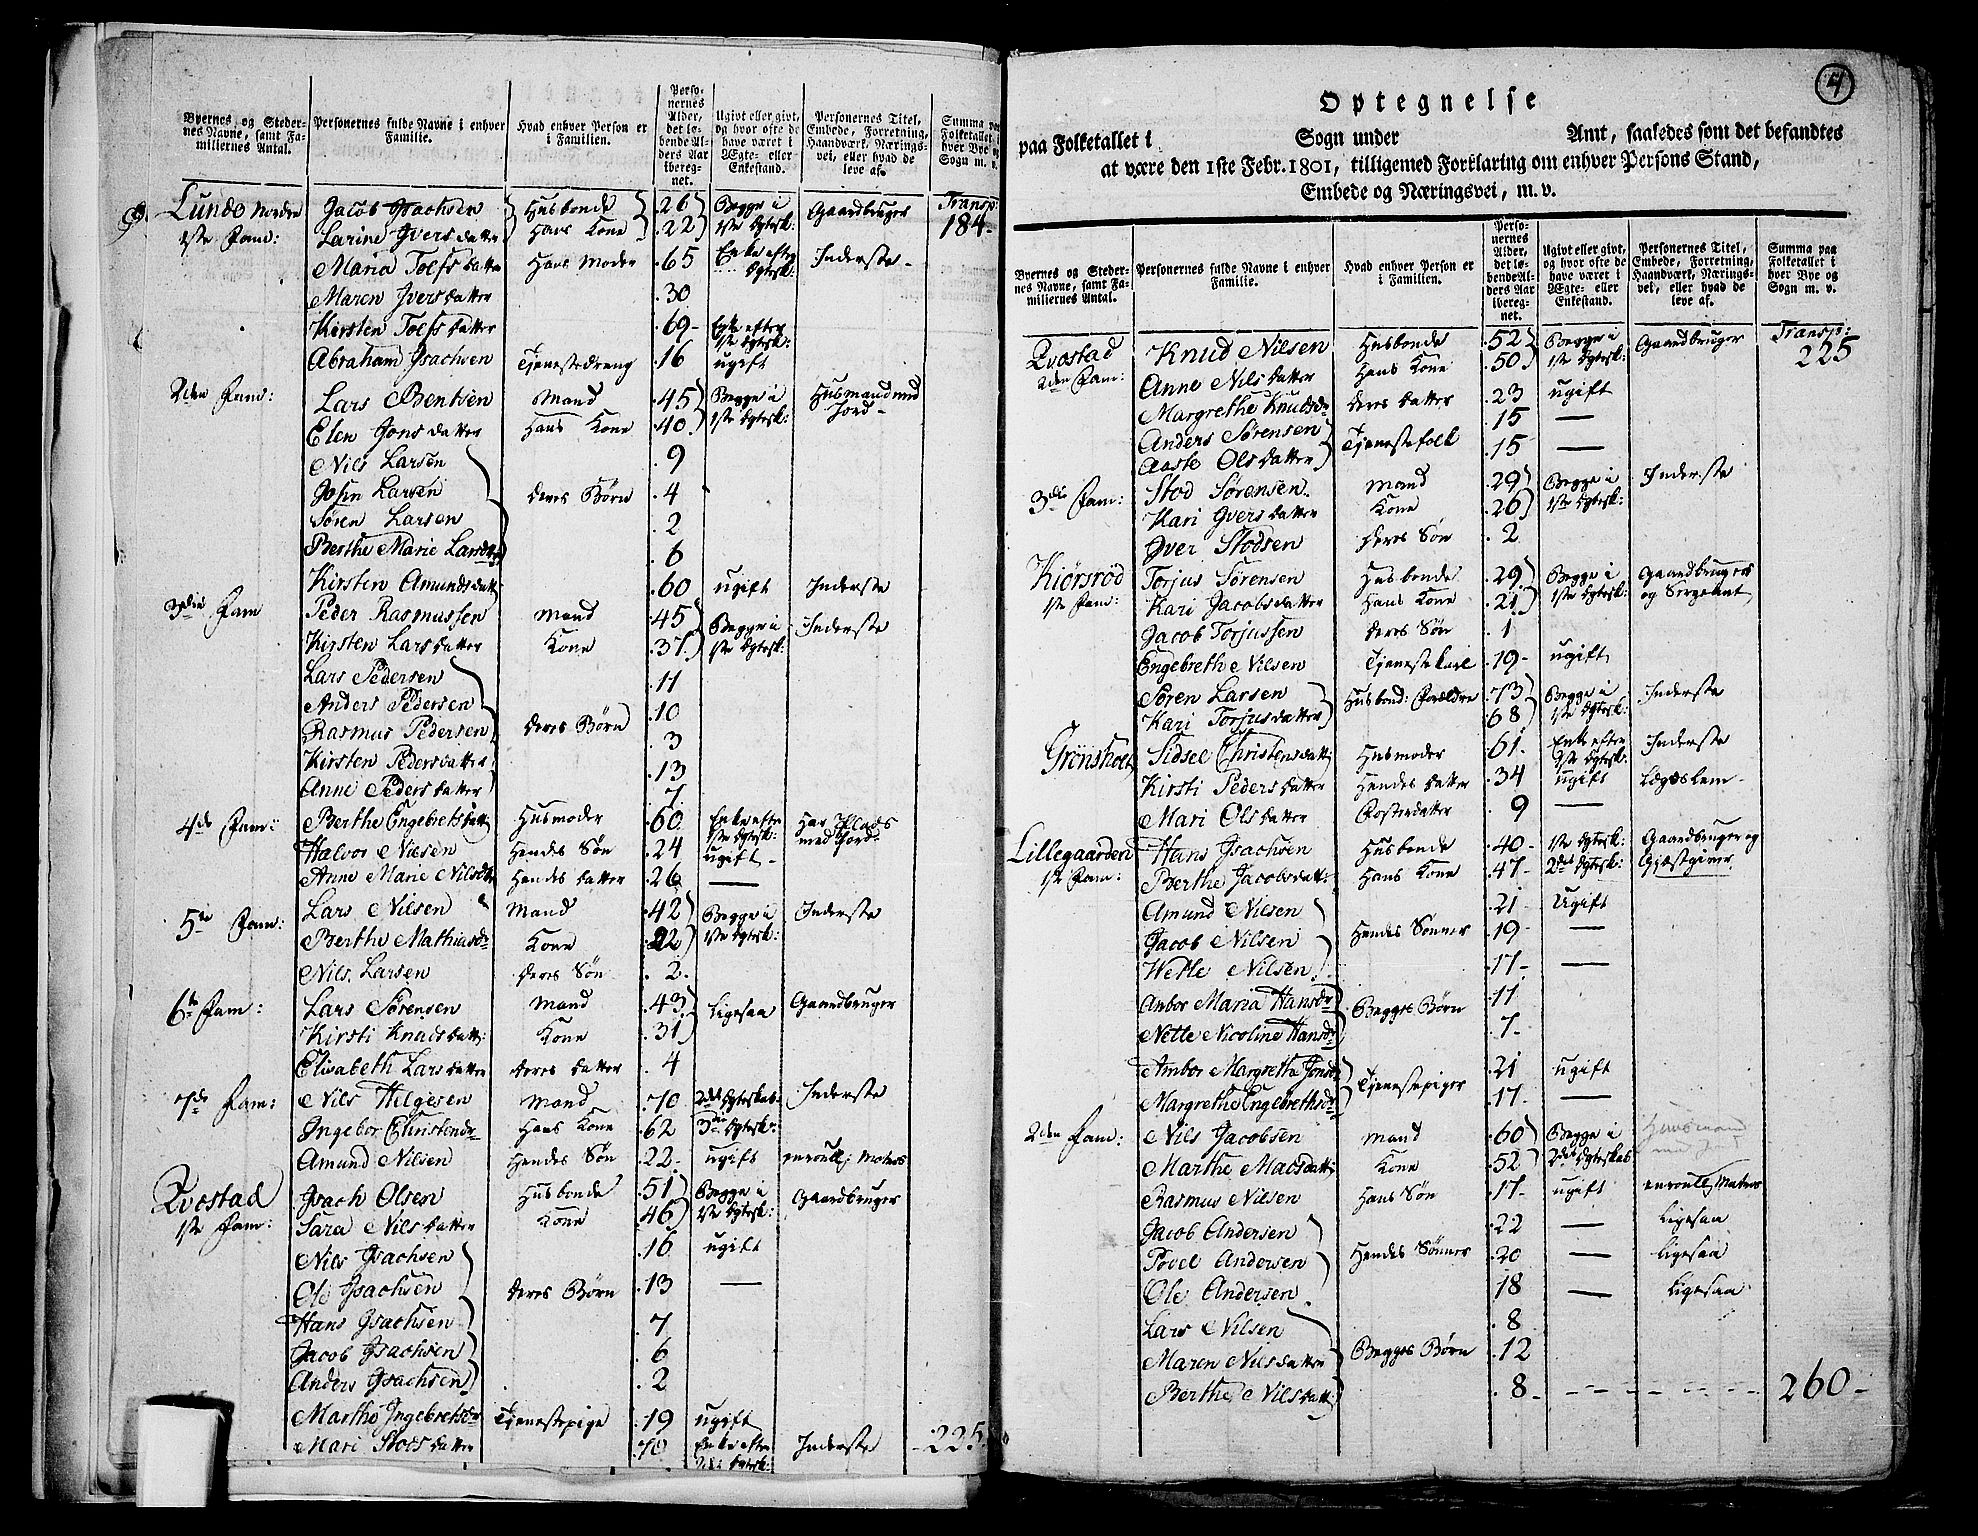 Byernes og Steder-
nes Navne, samt Fa-
miliernes Antal.
Personernes fulde Navne i enhver
Familie.
Hvad enhver Person er
i Familien.
Perso-
nernes
Alder,
det lø-
bende Al-
ders Aar
iberegn-
net.
Ugivt eller givt,
og hvor ofte de
have været i
Ægte- eller
Enkestand.
Personernes Titel,
Embede, Forretning,
Haandværk, Nærings-
vei, eller hvad de
leve af.
Summa paa
Folketallet i
hver Bye og
Sogn m. v.
Transp: 184
Lunde Nordre Jacob Isachsen Husbonde 26 Begge i Gaardbruger
1ste Fam: Larine Iversdatter Hans Kone 22 1ste Egtesk:
Maria Toefsdatter Hans Moder 65 Enke efter Egtesk: Inderste
Maren Iversdatter 30
Kirsten Toefsdatter 69 Enke efter 1ste Egtesk:
Abraham Isachsen Tjenestedreng 16 ugift
2den Fam: Lars Bentsen Mand 45 Begge i Husmand med
Elen Jonsdatter Hans Kone 40 1ste Egtesk: Jord
Nils Larsen 9
Larsen deres Børn 4
Søren Larsen 2
Berthe Marie Larsd 6
Kirsten Amundsdatt 60 ugift Inderste
3die Fam Peder Rasmussen Mand 45 Begge i Inderste
Kirsten Larsdatter Kone 37 1ste Egtesk:
Lars Pedersen 11
Anders Pedersen 10
Rasmus Pedersen deres Børn 3
Kirsten Pedersdatter 13
Anne Pedersdatter 7
4de Fam: Berthe Engebretsdatt Husmoder 60 Enke efter 1ste Egtesk: Har Plads med Jord
Halvor Nilsen Hendes Søn 24 ugift
Anne Marie Nilsd Hendes datter 26 —
5te Fam: Lars Nilsen Mand 42 Begge i Inderste
Berthe Mathiasdr Kone 22 1ste Egtesk:
Nils Larsen deres Søn 2
6te Fam: Lars Sørensen Mand 43 Ligesaa Gaardbruger
Kirsti Knudsdatt: Kone 31
Elisabeth Larsdatter deres datter 4
7de Fam: Nils Helgesen Mand 70 2det Egteskab: Inderste
Ingebor Christendr Hans Kone 62 3die Egtesk:
Amund Nilsen Hendes Søn 22 ugift enroull: Matros
Qvostad Isach Olsen Husbonde 51 Begge i Gaardbruger
1ste Fam: Sara Nilsdatter Kone 46 1ste Egtesk:
Nils Isachsen 16 ugift
Ole Isachsen deres Børn 13 —
Hans Isachsen 7
Jacob Isachsen 6
Anders Isachsen 2
Marthe Ingebretsdr Tjenestepige 19 ugift
Mari Stodsdatter 70 Enke efter 2det Egtesk: Inderste 225
4
Optegnelse
paa Folketallet i Sogn under Amt, saaledes som det befandtes
at være den 1ste Febr. 1801, tilligemed Forklaring om enhver Persons Stand,
Embede og Næringsvei, m. v.
Byernes og Steder-
nes Navne, samt Fa-
miliernes Antal.
Personernes fulde Navne i enhver
Familie.
Hvad enhver Person er
i Familien.
Perso-
nernes
Alder,
det lø-
bende Al-
ders Aar
iberegn-
net.
Ugivt eller givt,
og hvor ofte de
have været i
Ægte- eller
Enkestand.
Personernes Titel,
Embede, Forretning,
Haandværk, Nærings-
vei, eller hvad de
leve af.
Summa paa
Folketallet i
hver Bye og
Sogn m. v.
Transp: 225
Qvostad Knud Nilsen Husbonde 52 Begge i Gaardbruger
2den Fam: Anne Nilsdatter Hans Kone 50 1ste Egtesk:
Margrethe Knudsdr deres datter 23 ugift
Anders Sørensen Tjenestefolk 15 —
Aaste Olsdatter 15 —
3die Fam: Stod Sørensen Mand 29 Begge i Inderste
Kari Iversdatter Kone 26 1ste Egtesk:
Iver Stodsen deres Søn 2
Kiørsrød Torjus Sørensen Husbonde 29 Begge i Gaardbruger
1ste Fam: Kari Jacobsdatter Hans Kone 21 1ste Egtesk: og Sergeant
Jacob Torjussen deres Søn 1
Engebreth Nilsen Tjenestekarl 19 ugift
Søren Larsen Husbond: Forældre 73 Begge i Inderste
Kari Torjusdatter 68 1ste Egtesk:
Grønsholt Sidsel Christensdatt: Husmoder 61 Enke efter Egtesk: Inderste
Kirsti Pedersdatter Hendes datter 34 ugift Lægdslem
Mari Olsdatter Fosterdatter 9 —
Lillegaarden Hans Isachsen Husbonde 40 1ste Egtesk: Gaardbruger og
1ste Fam: Berthe Jacobsdatt: Hans Kone 47 2det Egtesk: Gjæstgiver
Amund Nilsen 21 Ugift
Jacob Nilsen Hendes Sønner 19 —
Wetle Nilsen 17 —
Anbor Maria Hansdr Begges Børn 11
Nelle Nicoline Hansdr 7
Ambor Margretha Jonsdr Tjenestepiger 21 ugift
Margrethe Engebrethsdr 17 —
2den Fam: Nils Jacobsen Mand 60 Begge i Huusmand
Marthe Madsdatt: Kone 52 2det Egteskab
Rasmus Nilsen Hans Søn 17 ugift enroull: Matros
Jacob Andersen 22 — Ligesaa
Povel Andersen Hendes Sønner 20 — Ligesaa
Ole Andersen 18 — Ligesaa
Lars Nilsen 8
Maren Nilsdatter Begges Børn 12
Berthe Nilsdatt: 8 260